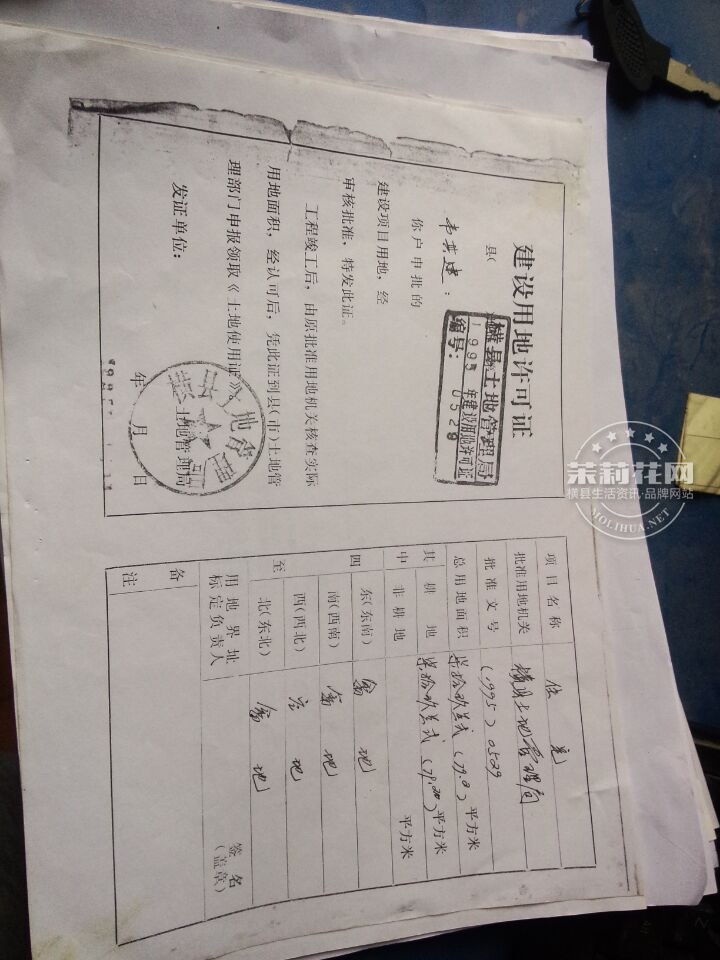 建设用地许可证
县(
横县土地管理局
1995 年建设用地许可证
编号: 0529
你户申批的
建设项目用地,经
审核批准,特发此证。
工程竣工后,由原批准用地机关核查实际
用地面积,经认可后,凭此证到县(市)土地管
理部门申报领取《土地使用证》。
发证单位:
土地管理局
年 月 日
项目名称 住宅
批准用地机关 横县土地管理局
批准文号 (1995) 0529
总用地面积 平方米
其中 耕地 平方米
非耕地 平方米
四至 东(东南) 地
南(西南) 地
西(西北) 地
北(东北) 地
用地界址
标定负责人 签名
(盖章)
备注
茉莉花网
横县生活资讯·品牌网站
MOLIHUA.NET